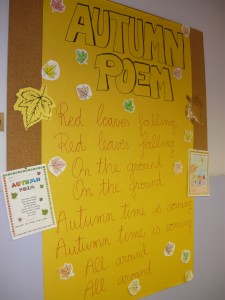 AUTUMN
POEM
Red leaves falling
Red leaves falling
On the ground
On the ground
Autumn time is coming
Autumn time is coming
All around
All around
AUTUMN
POEM